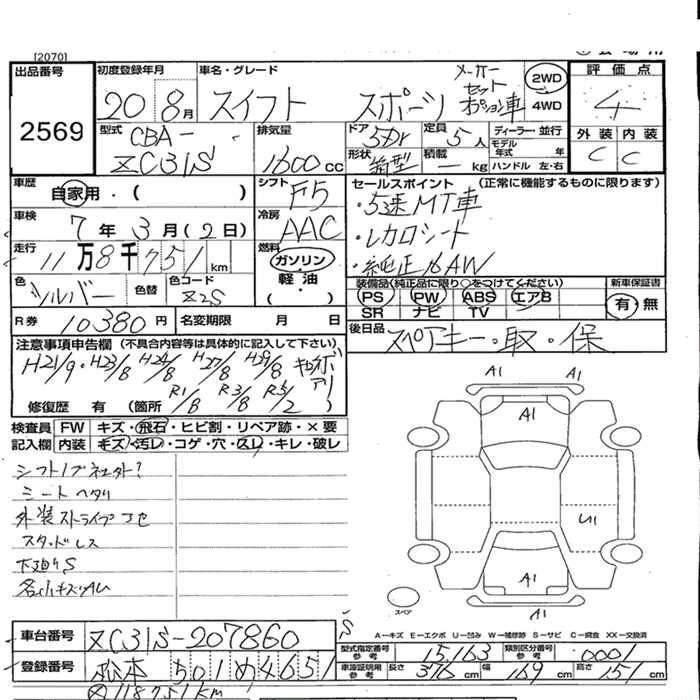 [2070]
出品番号 2569
初度登録年月 20年 8月
車名・グレード スイフト スポーツ
メーカーセットオプション車
2WD 4WD
評価点 4
外装 内装
C C
型式 CBA- ZC31S
排気量 1600cc
ドア 5Dr
形状 箱型
定員 5人
積載 — kg
ディーラー・並行
モデル年式 年
ハンドル 左・右
車歴 自家用・( )
シフト F5
セールスポイント (正常に機能するものに限ります)
・5速MT車
・レカロシート
・純正16AW
車検 7年 3月 (2日)
冷房 AAC
走行 11万8千751km
燃料 ガソリン・軽油・( )
色 シルバー
色替
色コード Z2S
装備品(純正品に限り○をつけてください)
PS PW ABS エアB
SR ナビ TV
新車保証書 有・無
R券 10380円
名変期限 月 日
後日品 スペアキー・取・保
注意事項申告欄 (不具合内容等は具体的に記入して下さい)
H21/9・H23/8 H24/8 H27/8 H29/8
R1/8 R3/8 R5/2
修復歴 有 (箇所
検査員記入欄
FW キズ・飛石・ヒビ割・リペア跡・×要
内装 キズ・汚レ・コゲ・穴・スレ・キレ・破レ
シフトノブ社外?
シートヘタリ
外装ストライプ
スタッドレス
下廻りS
A1 A1
A1
U1
A1
A1
スペア
A—キズ E—エクボ U—凹み W—補修跡 S—サビ C—腐食 XX—交換済
車台番号 ZC31S-207860
登録番号 松本 501 め 4651
型式指定番号 参考 15163
類別区分番号 参考 0001
車庫証明用 参考 長さ 376cm 幅 169cm 高さ 151cm
118751km